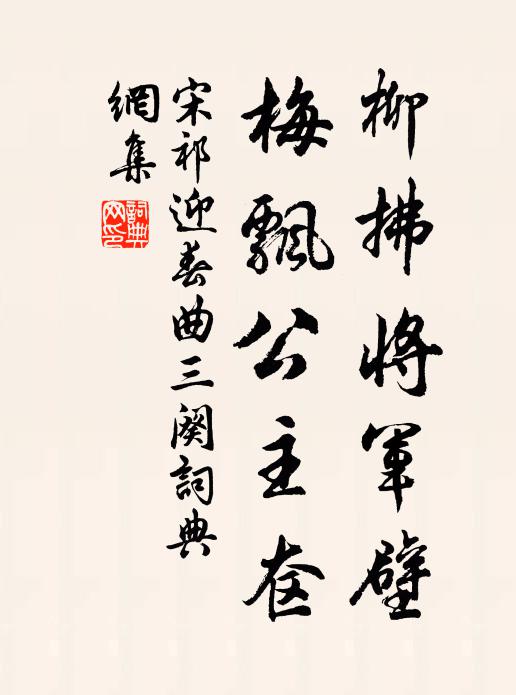 柳拂將軍壁
梅飄公主奩
宋祁迎春曲三闋詞典
網集
詞典網印